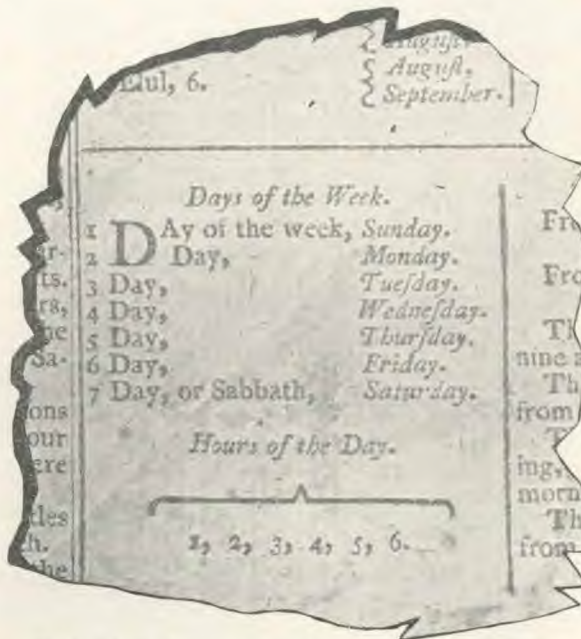 Auguſt.
Elul, 6.
Auguſt,
September.
Days of the Week.
1 DAy of the week, Sunday.
2 Day, Monday.
3 Day, Tueſday.
4 Day, Wedneſday.
5 Day, Thurſday.
6 Day, Friday.
7 Day, or Sabbath, Saturday.
Hours of the Day.
1, 2, 3, 4, 5, 6.
ts.
rs,
Sa-
ons
our
ere
h.
the
Th
nine a
Th
from
ing,
morn
Th
from